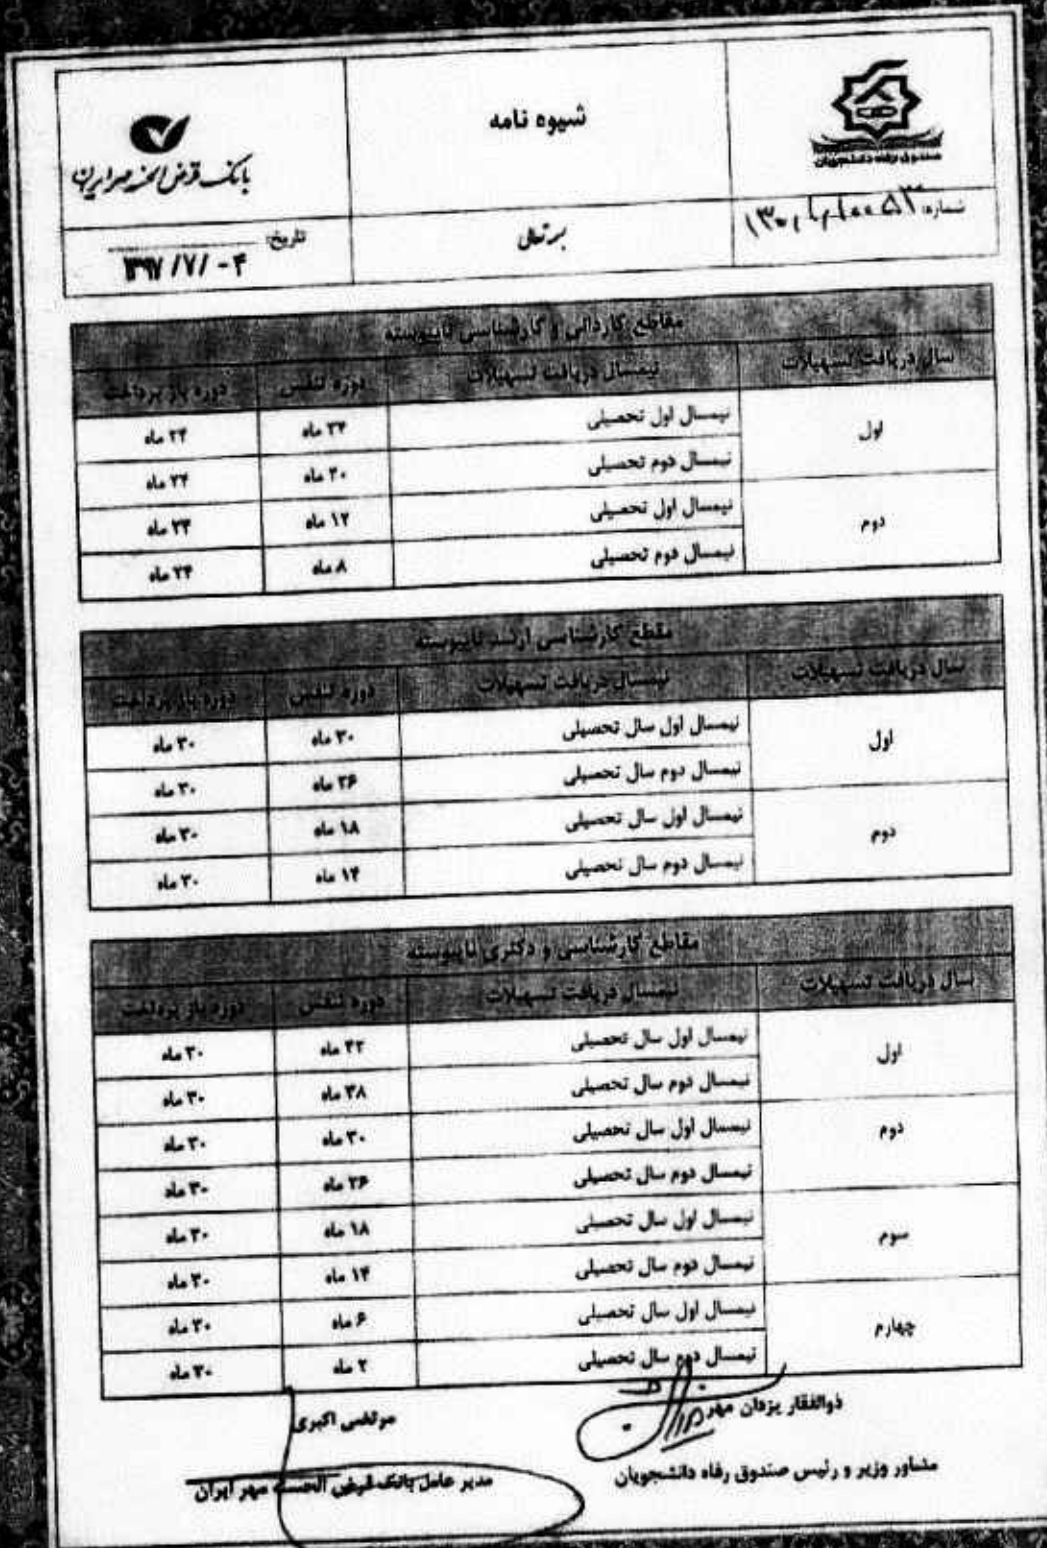 صندوق رفاه دانشجویان
شیوه نامه
بانک قرض الحسنه مهر ایران
شماره:
بسمه تعالی
تاریخ: ۱۳۹۷/۷/۰۴
مقاطع کاردانی و کارشناسی ناپیوسته
سال دریافت تسهیلات نیمسال دریافت تسهیلات دوره تنفس دوره باز پرداخت
اول نیمسال اول تحصیلی ۲۴ ماه ۲۴ ماه
نیمسال دوم تحصیلی ۲۰ ماه ۲۴ ماه
دوم نیمسال اول تحصیلی ۱۲ ماه ۲۴ ماه
نیمسال دوم تحصیلی ۸ ماه ۲۴ ماه
مقطع کارشناسی ارشد ناپیوسته
سال دریافت تسهیلات نیمسال دریافت تسهیلات دوره تنفس دوره باز پرداخت
اول نیمسال اول سال تحصیلی ۳۰ ماه ۳۰ ماه
نیمسال دوم سال تحصیلی ۲۶ ماه ۳۰ ماه
دوم نیمسال اول سال تحصیلی ۱۸ ماه ۳۰ ماه
نیمسال دوم سال تحصیلی ۱۴ ماه ۳۰ ماه
مقاطع کارشناسی و دکتری ناپیوسته
سال دریافت تسهیلات نیمسال دریافت تسهیلات دوره تنفس دوره باز پرداخت
اول نیمسال اول سال تحصیلی ۴۲ ماه ۳۰ ماه
نیمسال دوم سال تحصیلی ۳۸ ماه ۳۰ ماه
دوم نیمسال اول سال تحصیلی ۳۰ ماه ۳۰ ماه
نیمسال دوم سال تحصیلی ۲۶ ماه ۳۰ ماه
سوم نیمسال اول سال تحصیلی ۱۸ ماه ۳۰ ماه
نیمسال دوم سال تحصیلی ۱۴ ماه ۳۰ ماه
چهارم نیمسال اول سال تحصیلی ۶ ماه ۳۰ ماه
نیمسال دوم سال تحصیلی ۲ ماه ۳۰ ماه
ذوالفقار یزدان مهر
مرتضی اکبری
مشاور وزیر و رئیس صندوق رفاه دانشجویان
مدیر عامل بانک قرض الحسنه مهر ایران